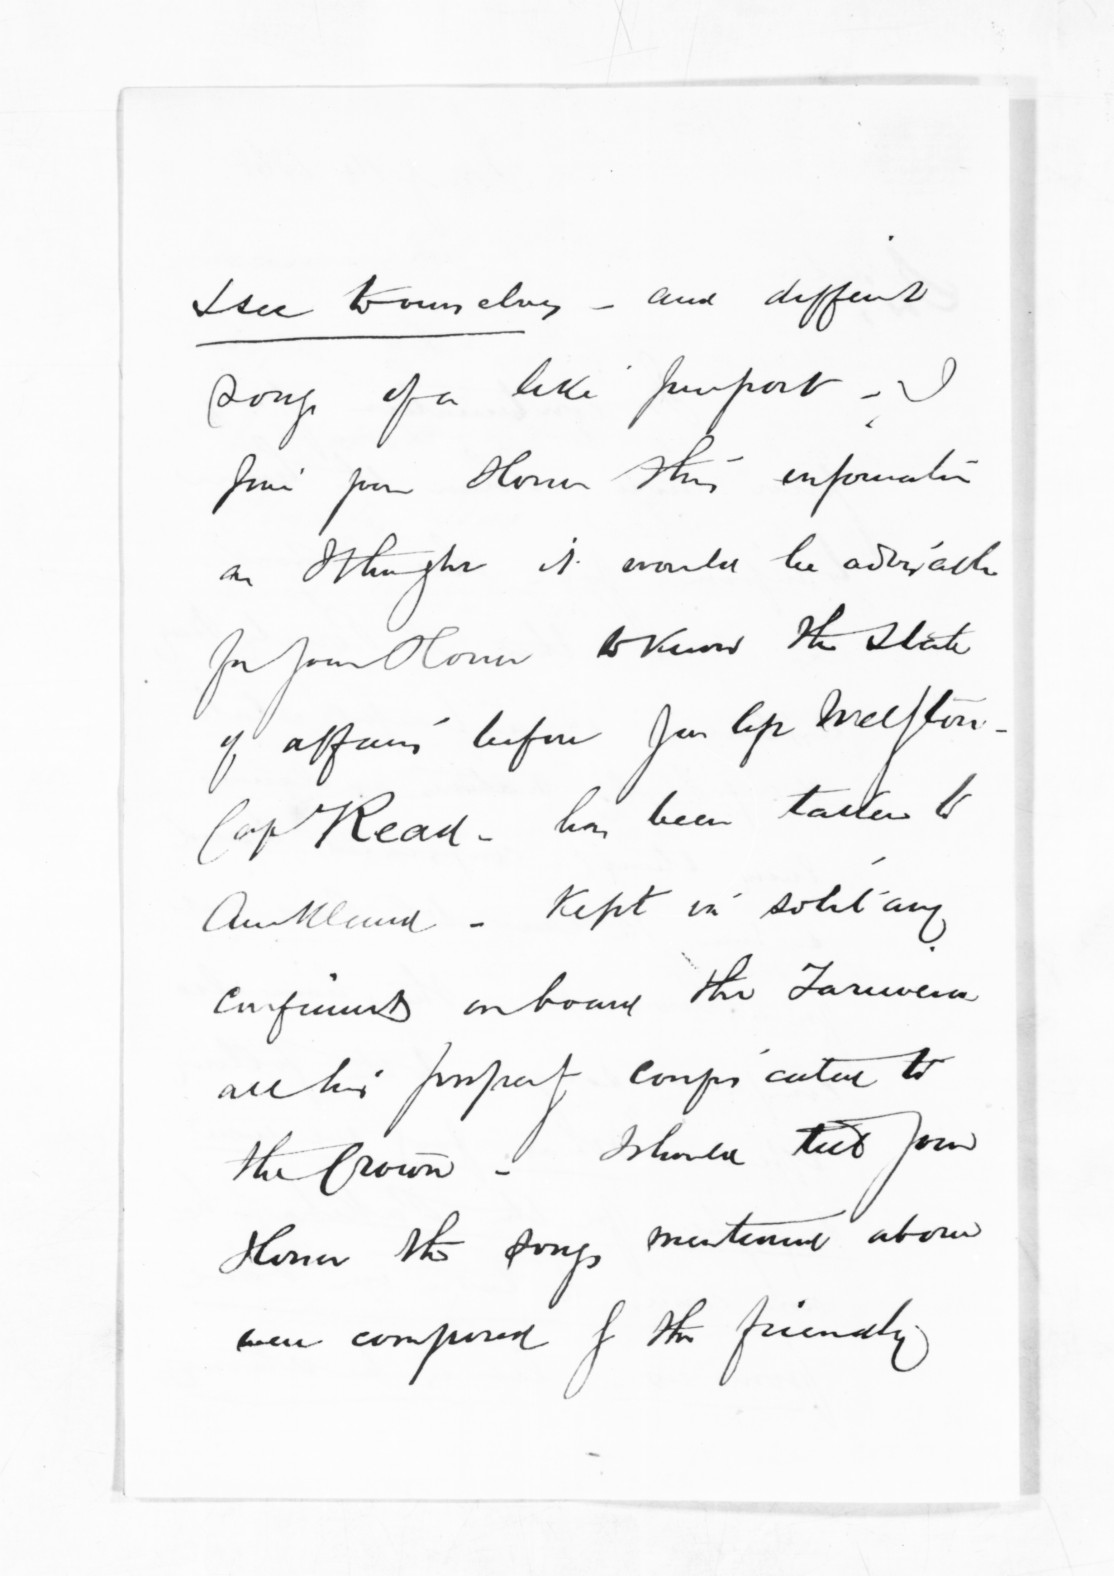 & see to ourselves - and different
songs of a like purport - I
give your Honor this information
as I thought it would be advisable
for your Honor to know the state
of affairs before you left Wellgton -
Capt Read - has been taken to
Auckland - Kept in solitary
confinement on board the
all his property confiscated to
the Crown - I should tell your
Honor the songs mentioned above
were composed by the friendly